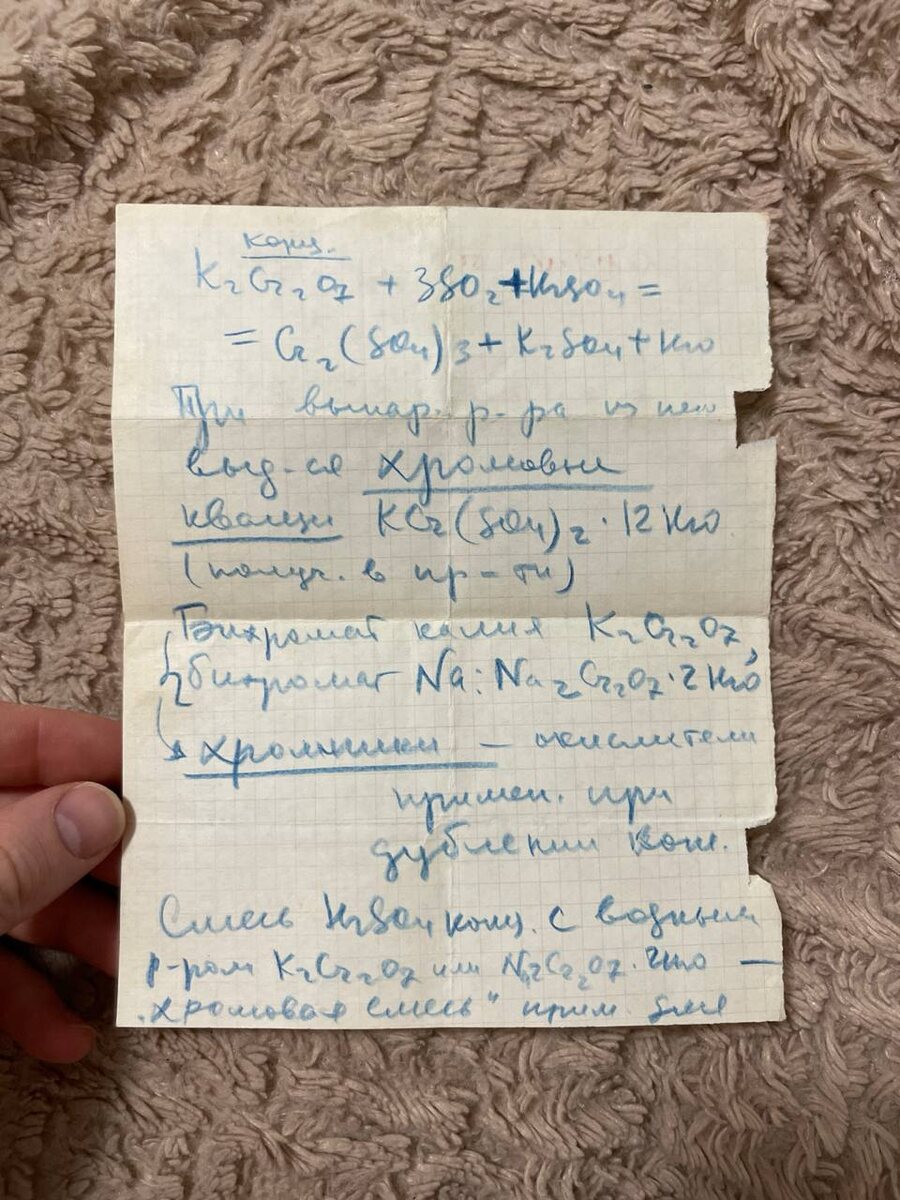 конц.
K₂Cr₂O₇ + 3SO₂ + H₂SO₄ =
= Cr₂(SO₄)₃ + K₂SO₄ + H₂O
При выпар. р-ра из него
выд-ся хромовые
квасцы KCr(SO₄)₂ · 12 H₂O
(получ. в пр-ти)
Бихромат калия K₂Cr₂O₇,
бихромат Na: Na₂Cr₂O₇·2H₂O
хромпики – окислители
примен. при
дублении кож.
Смесь H₂SO₄ конц. с водным
р-ром K₂Cr₂O₇ или Na₂Cr₂O₇·2H₂O —
„хромовая смесь" прим. для